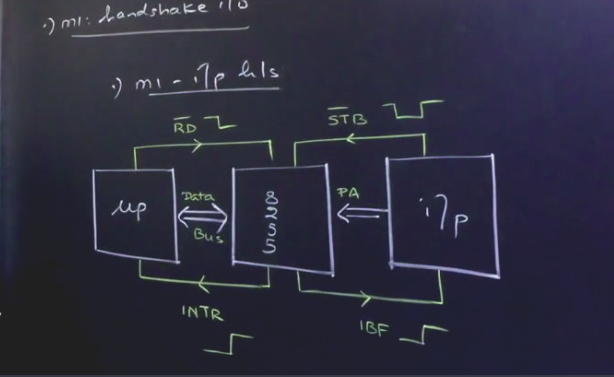 .) M1: handshake I/O
.) M1 - i/p h/s
RD
STB
μp
Data
Bus
8
2
5
5
PA
i/p
INTR
IBF